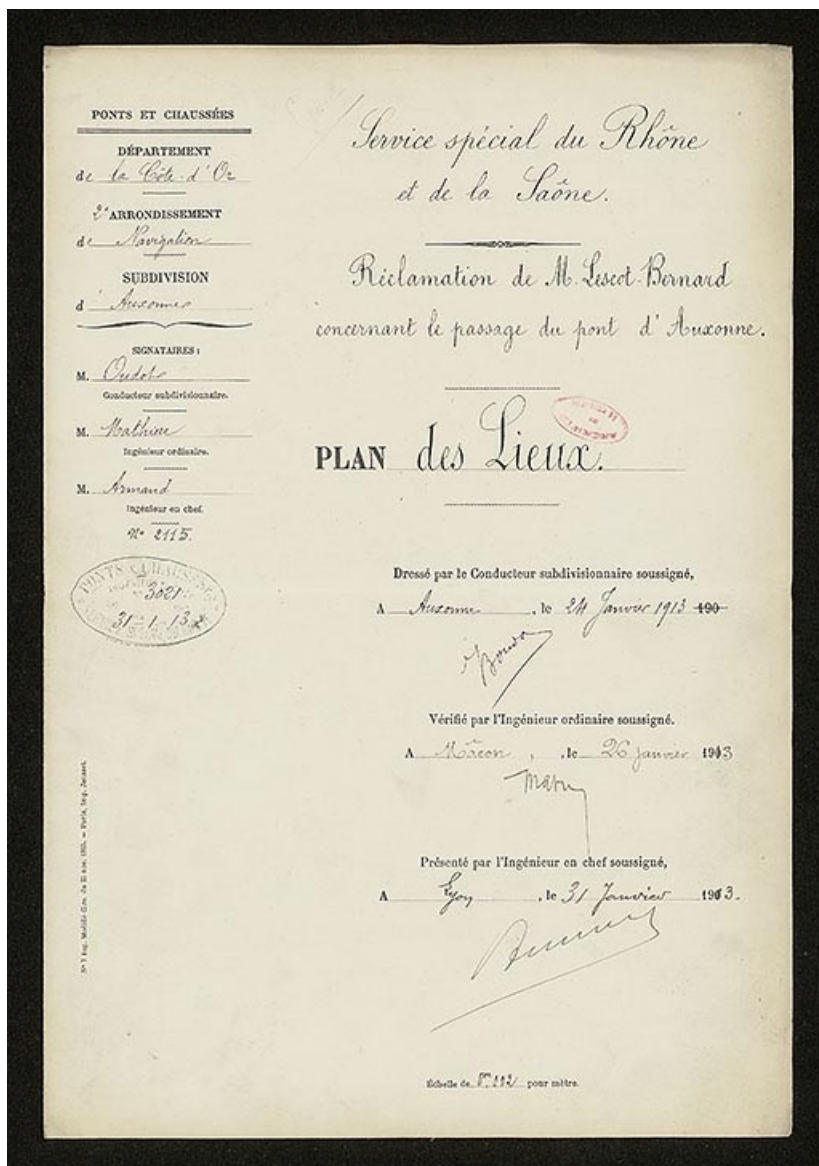 PONTS ET CHAUSSÉES
DÉPARTEMENT
de la Côte-d'Or
2e ARRONDISSEMENT
de Navigation
SUBDIVISION
d'Auxonne
SIGNATAIRES :
M. Oudot
Conducteur subdivisionnaire.
M. Mathieu
Ingénieur ordinaire.
M. Armand
Ingénieur en chef.
No 2115.
PONTS & CHAUSSÉES
3021
31 - 1 - 13
Service spécial du Rhône
et de la Saône.
Réclamation de M. Lescot-Bernard
concernant le passage du pont d'Auxonne.
PLAN des Lieux.
Dressé par le Conducteur subdivisionnaire soussigné,
A Auxonne, le 24 Janvier 1913 190
Vérifié par l'Ingénieur ordinaire soussigné.
A Mâcon, le 26 janvier 1913
Présenté par l'Ingénieur en chef soussigné,
A Lyon, le 31 Janvier 1913.
Échelle de 0m.002 pour mètre.